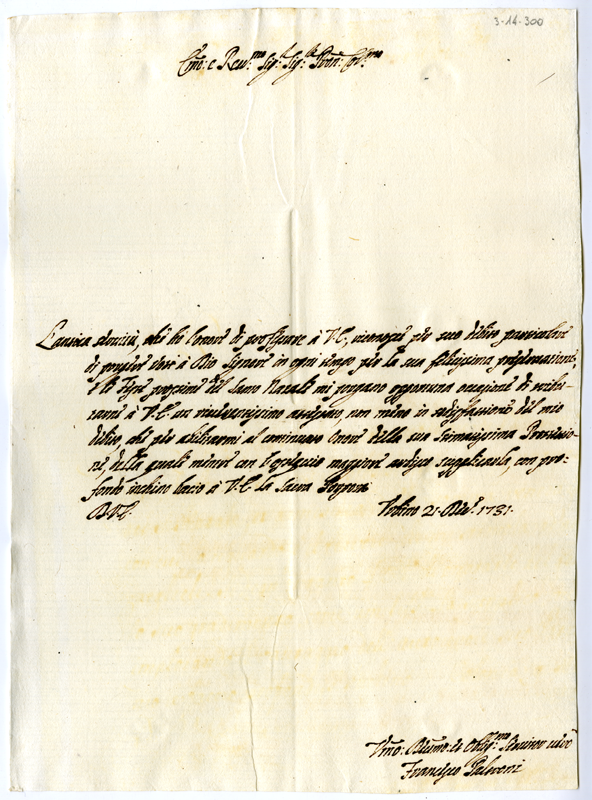 3-14-300
Emo: e Reu.mo Sig.r Sig.r Pron: Col.mo
L'antica seruitù, che hò l'onore di professare à V.E., riconosce per suo debito particolare
di porger voti à Dio Signore in ogni tempo per la sua felicissima preseruazione,
e le Feste prossime del Santo Natale mi porgono opportuna occasione di
à V.E. un riuerentissimo non meno in sodisfazione del mio
debito, che per abilitarmi al continuato onore della sua Stimatissima Protezio-
ne, della quale mentre con l'ossequio maggiore ardisco supplicarla, con pro-
fondo inchino bacio à V.E. la Sacra Porpora
D.V.E.
Urbino 21. Dec.e 1731.
Vmo: Diumo: et Oblig.mo Seruitor
Francesco